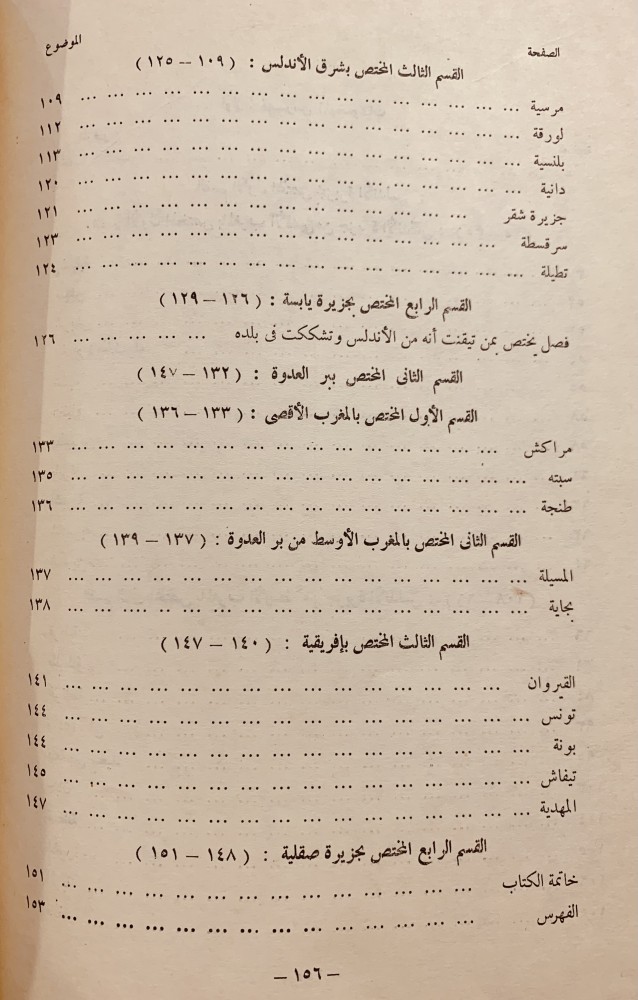 الصفحة الموضوع
القسم الثالث المختص بشرق الأندلس : ( ١٠٩ – ١٢٥ )
مرسية ... ... ... ... ... ... ... ... ... ... ... ... ... ... ... ١٠٩
لورقة ... ... ... ... ... ... ... ... ... ... ... ... ... ... ... ١١٢
بلنسية ... ... ... ... ... ... ... ... ... ... ... ... ... ... ... ١١٣
دانية ... ... ... ... ... ... ... ... ... ... ... ... ... ... ... ١٢٠
جزيرة شقر ... ... ... ... ... ... ... ... ... ... ... ... ... ١٢١
سرقسطة ... ... ... ... ... ... ... ... ... ... ... ... ... ... ١٢٣
تطيلة ... ... ... ... ... ... ... ... ... ... ... ... ... ... ... ١٢٤
القسم الرابع المختص بجزيرة يابسة : ( ١٢٦ – ١٢٩ )
فصل يختص بمن تيقنت أنه من الأندلس وتشككت فى بلده ... ... ... ... ... ١٢٦
القسم الثانى المختص ببر العدوة : ( ١٣٢ – ١٤٧ )
القسم الأول المختص بالمغرب الأقصى : ( ١٣٣ – ١٣٦ )
مراكش ... ... ... ... ... ... ... ... ... ... ... ... ... ... ١٣٣
سبته ... ... ... ... ... ... ... ... ... ... ... ... ... ... ... ١٣٥
طنجة ... ... ... ... ... ... ... ... ... ... ... ... ... ... ... ١٣٦
القسم الثانى المختص بالمغرب الأوسط من بر العدوة : ( ١٣٧ – ١٣٩ )
المسيلة ... ... ... ... ... ... ... ... ... ... ... ... ... ... ... ١٣٧
بجاية ... ... ... ... ... ... ... ... ... ... ... ... ... ... ... ١٣٨
القسم الثالث المختص بإفريقية : ( ١٤٠ – ١٤٧ )
القيروان ... ... ... ... ... ... ... ... ... ... ... ... ... ... ١٤١
تونس ... ... ... ... ... ... ... ... ... ... ... ... ... ... ... ١٤٤
بونة ... ... ... ... ... ... ... ... ... ... ... ... ... ... ... ١٤٤
تيفاش ... ... ... ... ... ... ... ... ... ... ... ... ... ... ... ١٤٥
المهدية ... ... ... ... ... ... ... ... ... ... ... ... ... ... ... ١٤٧
القسم الرابع المختص بجزيرة صقلية : ( ١٤٨ – ١٥١ )
خاتمة الكتاب ... ... ... ... ... ... ... ... ... ... ... ... ... ١٥١
الفهرس ... ... ... ... ... ... ... ... ... ... ... ... ... ١٥٣
– ١٥٦ –